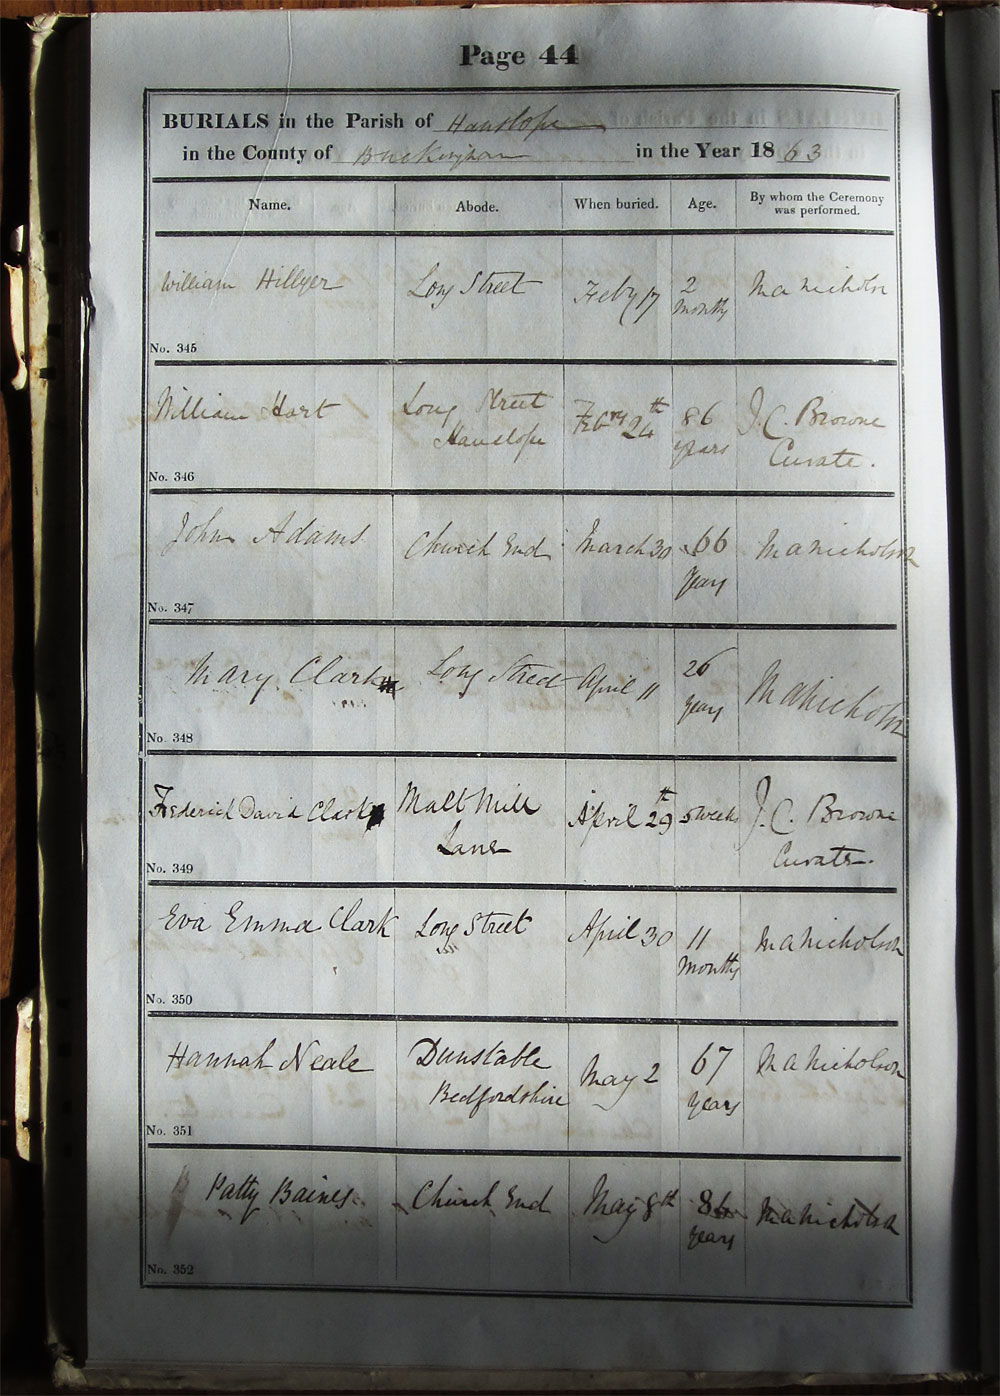 Page 44
BURIALS in the Parish of Hanslope
in the County of Buckingham in the Year 1863
Name. Abode. When buried. Age. By whom the Ceremony was performed.
William Hillyer Long Street Feby 17 2 months Ma Nicholson
No. 345
William Hart Long Street Hanslope Febry 24th 86 years J. C. Browne Curate.
No. 346
John Adams Church End March 30 66 Years Ma Nicholson
No. 347
Mary Clark Long Street April 11 26 years Ma Nicholson
No. 348
Frederick David Clark Malt Mill Lane April 29th 5 weeks J. C. Browne Curate.
No. 349
Eva Emma Clark Long Street April 30 11 months Ma Nicholson
No. 350
Hannah Neale Dunstable Bedfordshire May 2 67 years Ma Nicholson
No. 351
Patty Baines Church End May 8th years Ma Nicholson
No. 352